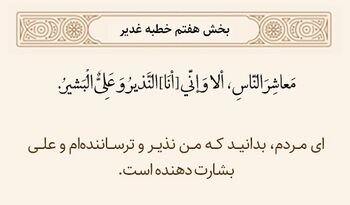 بخش هفتم خطبه غدیر
مَعاشِرَ النّاسِ، ألا وَ إنّي [أنَا] النَّذيرُ وَ عَلِيٌّ الْبَشيرُ.
ای مردم، بدانید که من نذیر و ترساننده‌ام و علی
بشارت دهنده است.